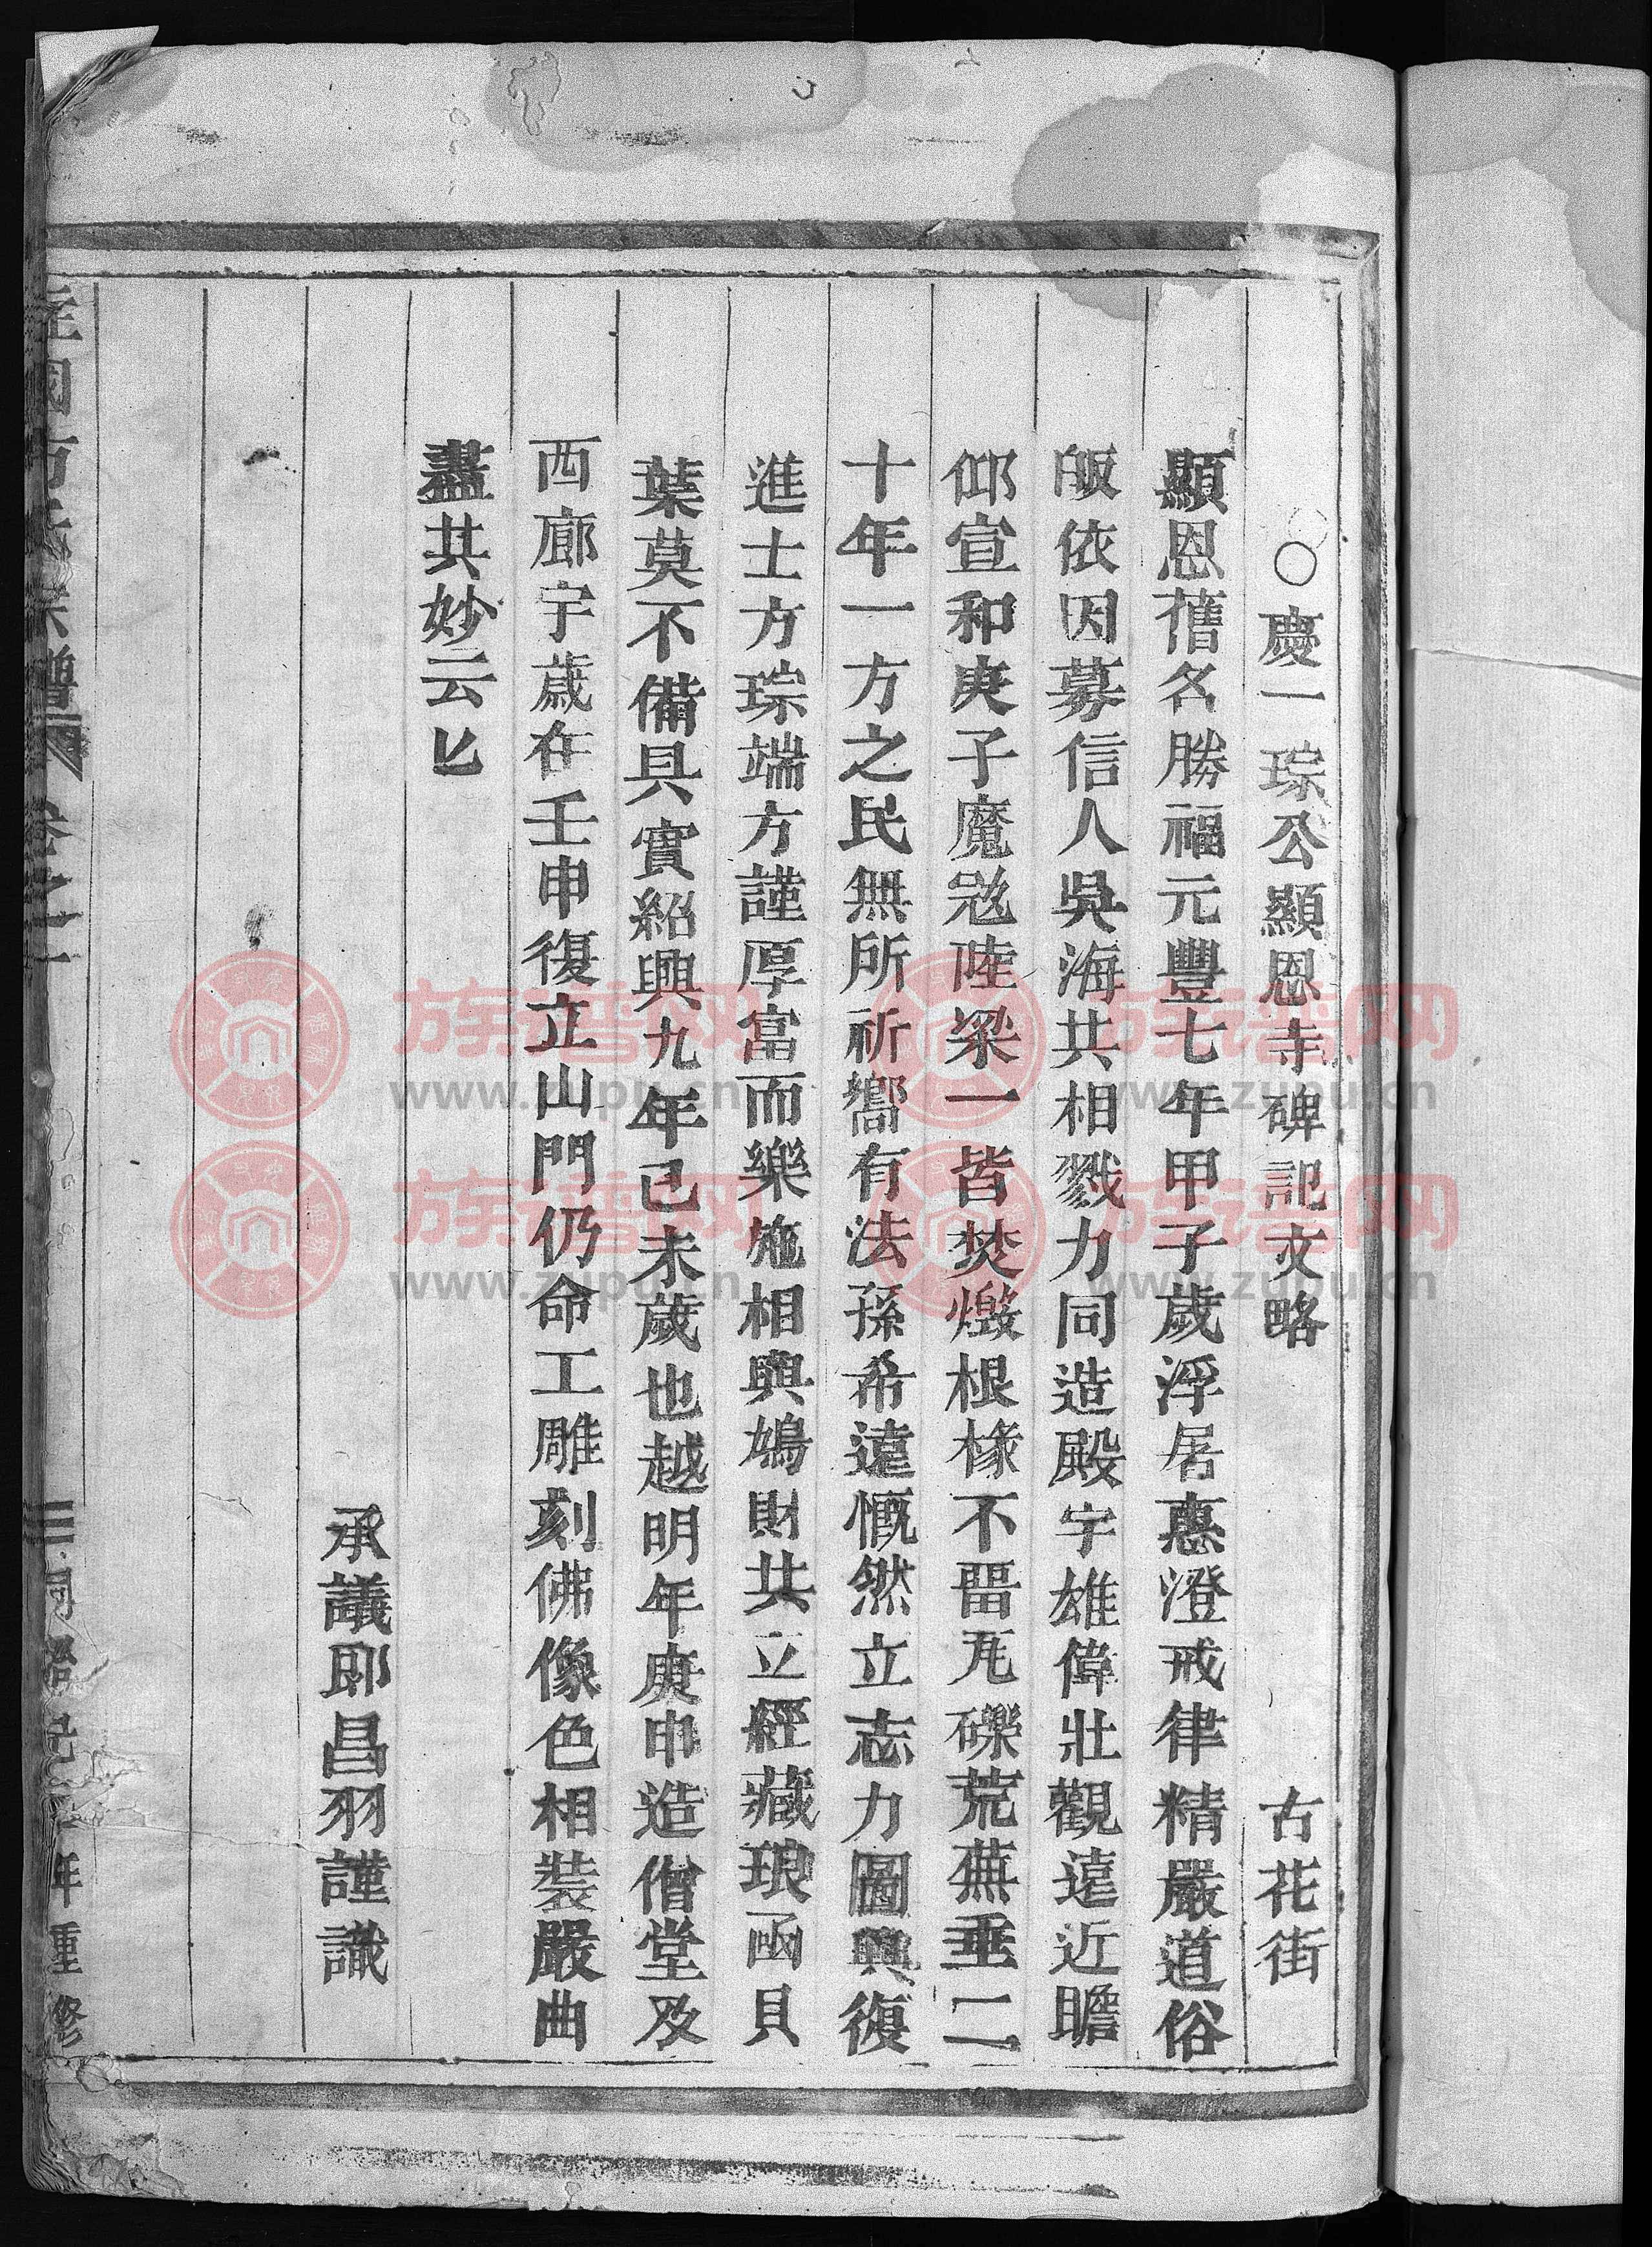 ○慶一琮公顯恩寺碑記文略 古花街
顯恩舊名勝福元豐七年甲子歲浮居惠澄戒律精嚴道俗
皈依因募信人吳海共相戮力同造殿宇雄偉壯觀遠近瞻
仰宣和庚子魔冦陸梁一皆焚燬根椽不畱瓦礫荒蕪垂二
十年一方之民無所祈嚮有法孫希遠慨然立志力圖興復
進士方琮端方謹厚富而樂施相與鳩財共立經藏琅函貝
葉莫不備具實紹興九年已未歲也越明年庚申造僧堂及
西廊宇歲在壬申復立山門仍命工雕刻佛像色相裝嚴曲
盡其妙云匕
承議郎昌羽謹識
卷之一
同治 年重修
族谱网
www.zupu.cn
族谱网
www.zupu.cn
族谱网
www.zupu.cn
族谱网
www.zupu.cn